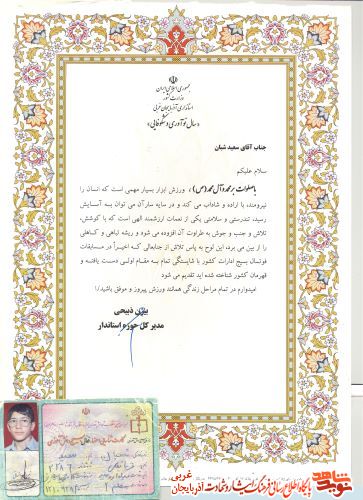 جمهوری اسلامی ایران
وزارت کشور
استانداری آذربایجان غربی
«سال نوآوری و شکوفایی»
جناب آقای سعید شبان
سلام علیکم
با صلوات بر محمد و آل محمد (ص) ، ورزش ابزار بسیار مهمی است که انسان را
نیرومند، با اراده و شاداب می کند و در سایه سار آن می توان به آسایش
رسید، تندرستی و سلامتی یکی از نعمات ارزشمند الهی است که با کوشش،
تلاش و جنب و جوش به طراوت آن افزوده می شود و ریشه تباهی و کاهلی
را از بین می برد، این لوح به پاس تلاش از جنابعالی که اخیراً در مسابقات
فوتسال بسیج ادارات کشور با شایستگی تمام به مقام اولی دست یافته و
قهرمان کشور شناخته شده اید تقدیم می شود
امیدوارم در تمام مراحل زندگی همانند ورزش پیروز و موفق باشید./ا
بیژن ذبیحی
مدیر کل حوزه استاندار
نوید شاهد
پایگاه اطلاع رسانی فرهنگ ایثار و شهادت آذربایجان غربی